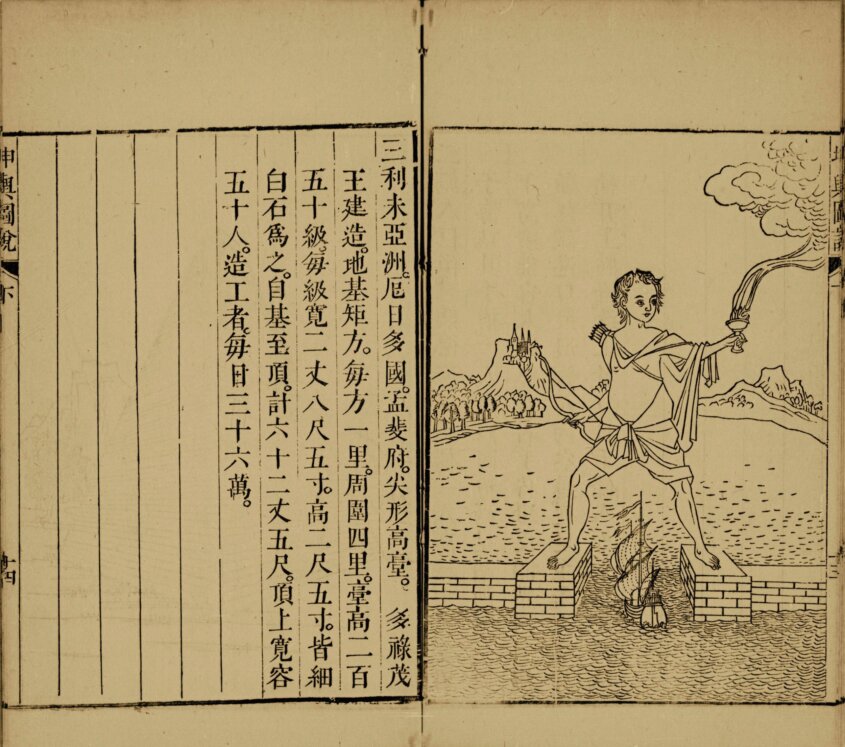 坤輿圖說
三利未亞洲。厄日多國。孟斐府。尖形高臺。 多祿茂
王建造。地基矩方。每方一里。周圍四里。臺高二百
五十級。每級寬二丈八尺五寸。高二尺五寸。皆細
白石爲之。自基至頂。計六十二丈五尺。頂上寬容
五十人。造工者。每日三十六萬。
坤輿圖說 下 十四